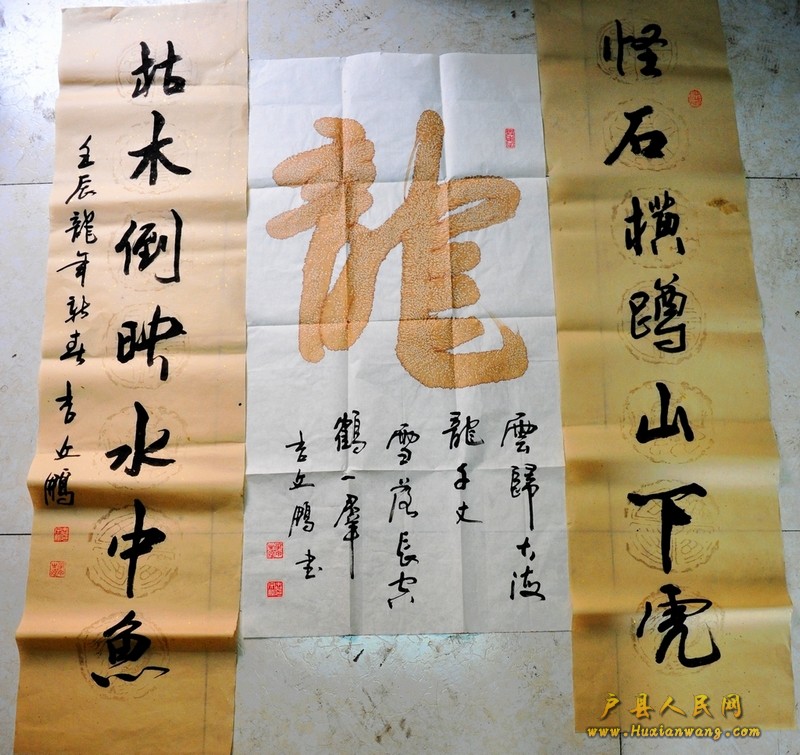 怪石横蹲山下虎
龍
雲歸大海
龍千丈
雪落長空
鶴一羣
李鵬书
枯木倒映水中鱼
壬辰龍年新春 李鵬
户县人民网
www.Huxianwang.com